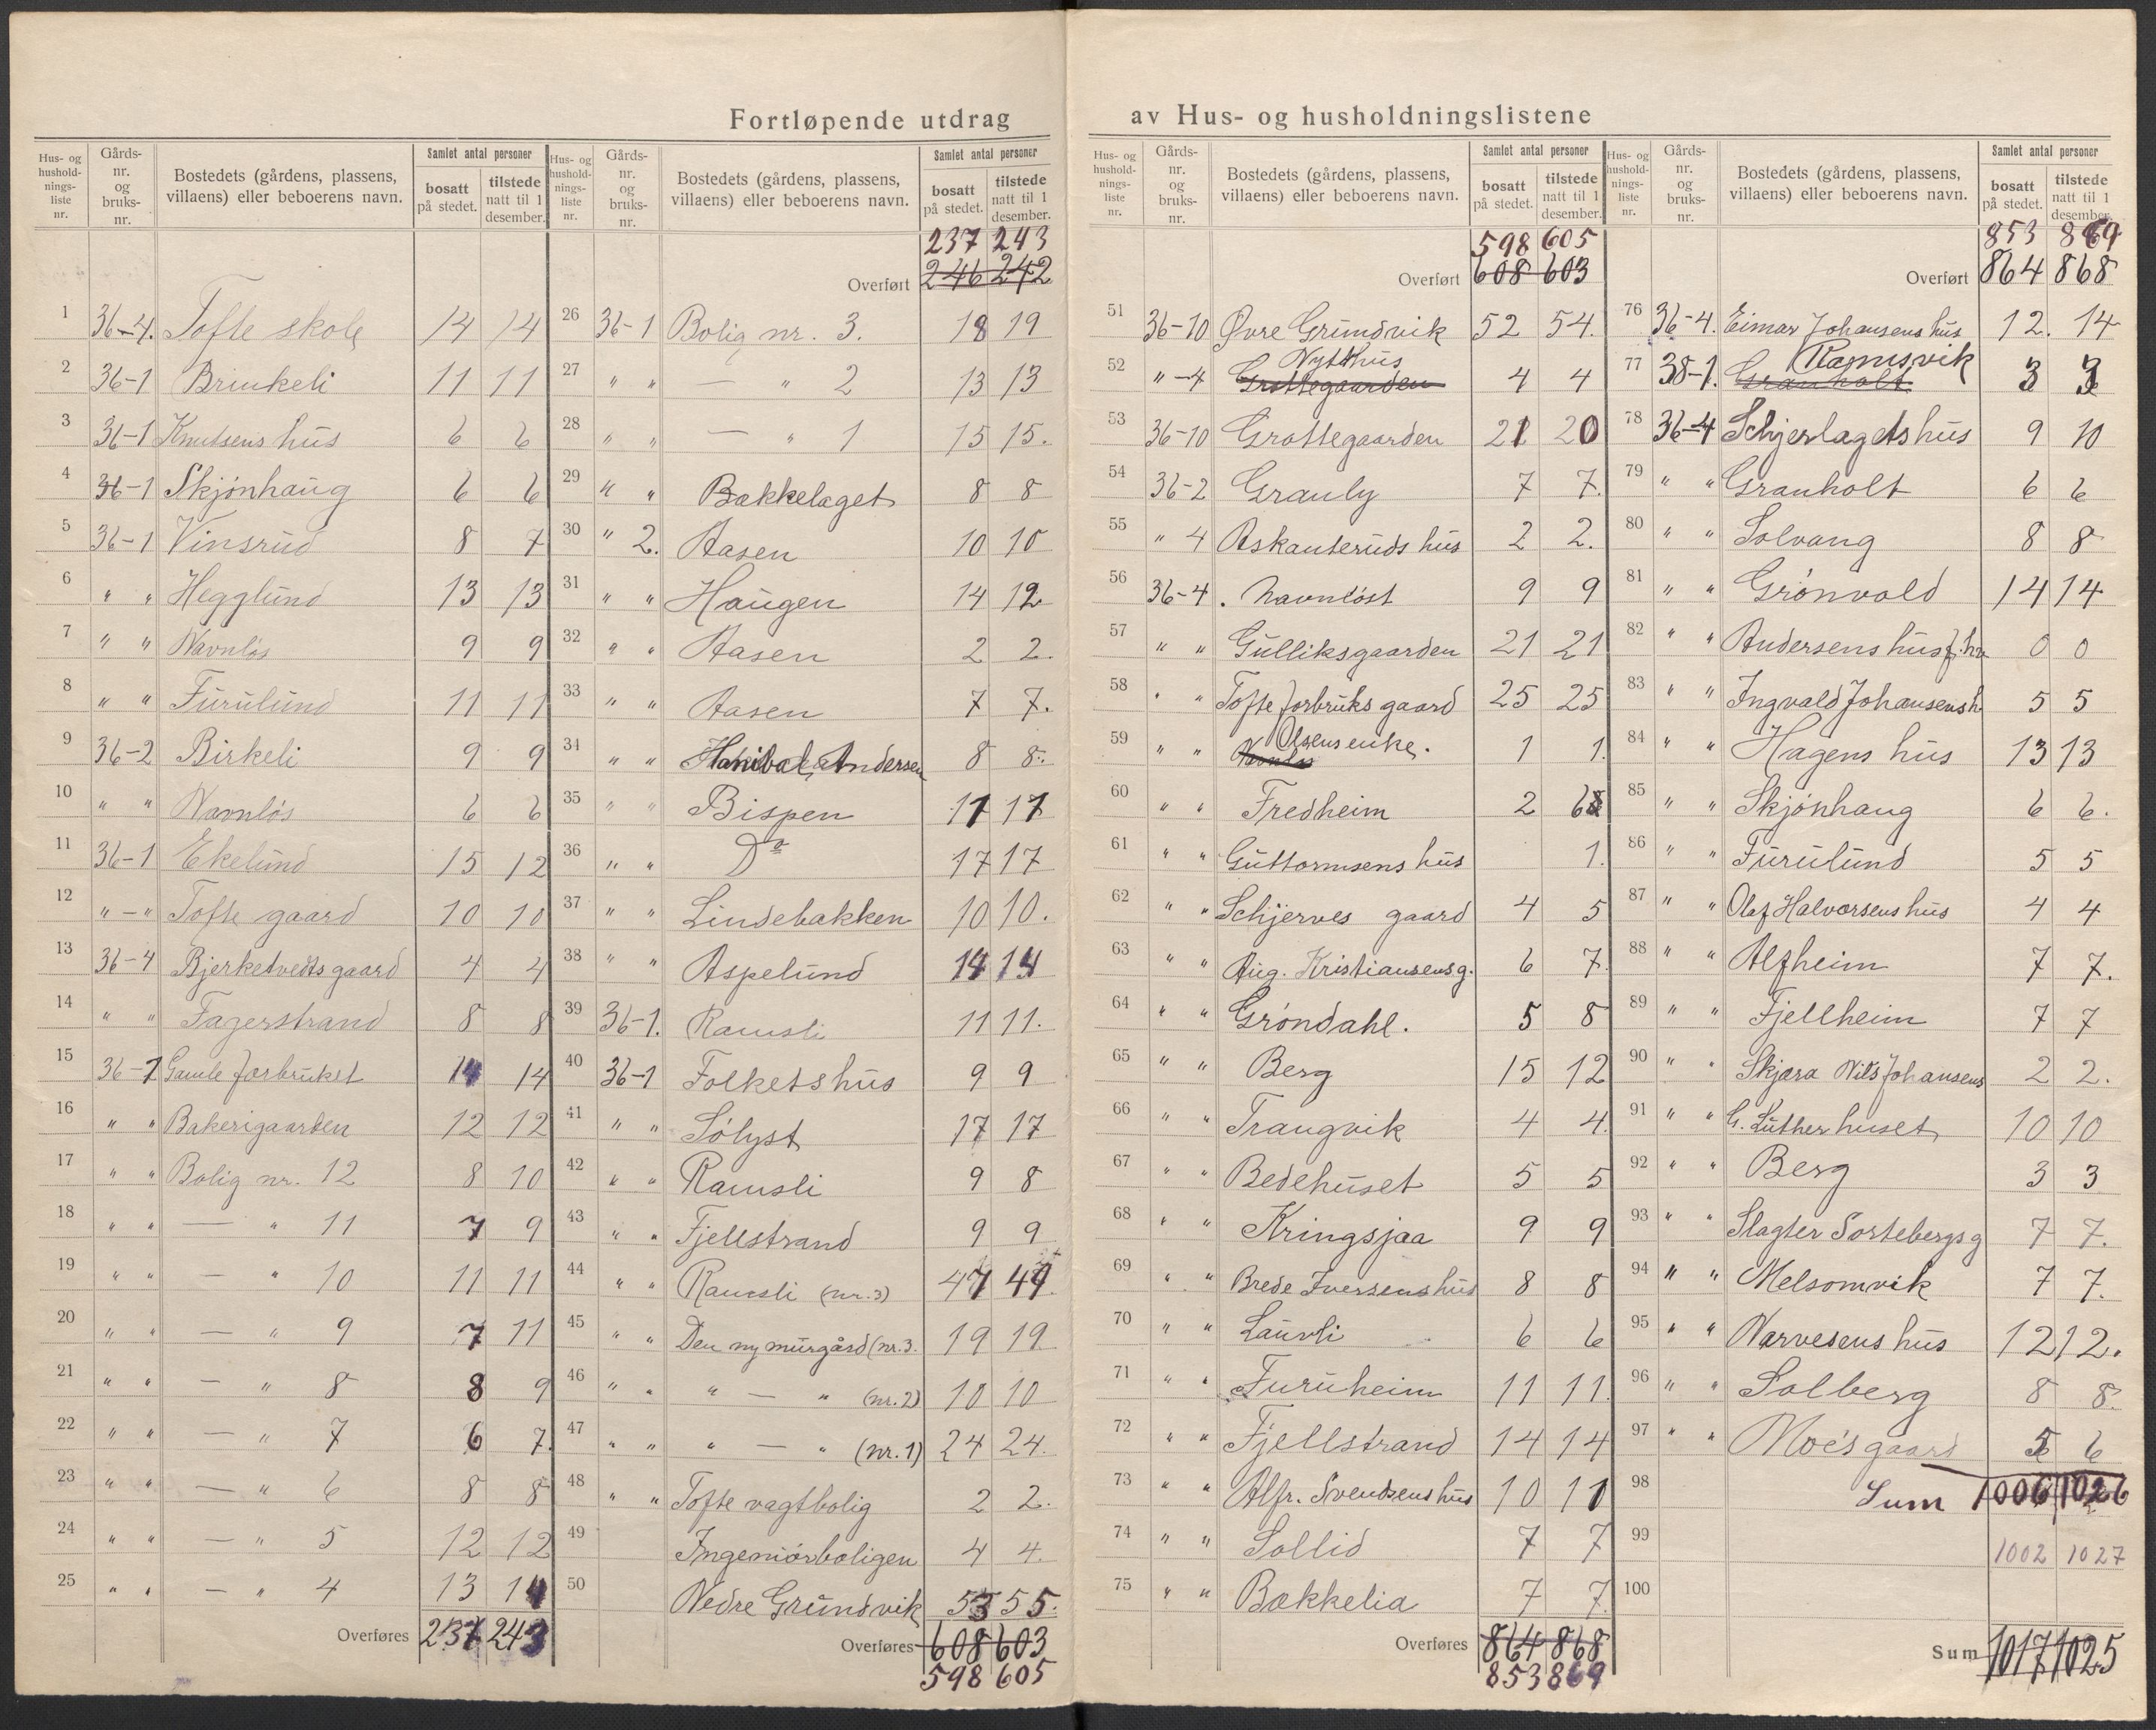 Fortløpende utdrag av Hus- og husholdningslistene
Hus- og hushold- nings- liste nr. | Gårds- nr. og bruks- nr. | Bostedets (gårdens, plassens, villaens) eller beboerens navn. | Samlet antal personer | bosatt på stedet. | tilstede natt til 1 desember.
1 36-4. Tofte skole 14 14
2 36-1 Brinkeli 11 11
3 36-1 Knutsens hus 6 6
4 36-1 Skjønhaug 6 6
5 36-1 Vinsrud 8 7
6 " " Hegglund 13 13
7 " " Navnløs 9 9
8 " " Furulund 11 11
9 36-2 Birkeli 9 9
10 " " Navnløs 6 6
11 36-1 Ekelund 15 12
12 " - " Tofte gaard 10 10
13 36-4 Bjerketvedts gaard 4 4
14 " " Fagerstrand 8 8
15 36-1 Gamle forbruket 14 14
16 " " Bakerigaarden 12 12
17 " " Bolig nr. 12 8 10
18 " " — " 11 7 9
19 " " — " 10 11 11
20 " " — " 9 7 11
21 " " — " 8 8 9
22 " " — " 7 6 7.
23 " " — " 6 8 8
24 " " — " 5 12 12
25 " " — " 4 13 14
Overføres 237 243
Hus- og hushold- nings- liste nr. | Gårds- nr. og bruks- nr. | Bostedets (gårdens, plassens, villaens) eller beboerens navn. | Samlet antal personer | bosatt på stedet. | tilstede natt til 1 desember.
237 243
Overført 246 242
26 36-1 Bolig nr. 3. 18 19
27 " " — " 2 13 13
28 " " — " 1 15 15.
29 " " Bakkelaget 8 8
30 " 2. Aasen 10 10
31 " " Haugen 14 12
32 " " Aasen 2 2.
33 " " Aasen 7 7.
34 " " Hanibal Andersen 8 8.
35 " " Bispen 17 17
36 " " Do 17 17
37 " " Lindebakken 10 10.
38 " " Aspelund 14 14
39 36-1. Ramsli 11 11.
40 36-1 Folketshus 9 9
41 " " Sølyst 17 17
42 " " Ramsli 9 8
43 " " Fjellstrand 9 9
44 " " Ramsli (nr. 3) 47 49.
45 " " Den ny murgård (nr. 3. 19 19
46 " " " — " (nr. 2) 10 10
47 " " " — " (nr. 1) 24 24.
48 " " Tofte vagtbolig 2 2.
49 Ingeniørboligen 4 4.
50 Nedre Grundvik 53 55.
Overføres 608 603
598 605
Hus- og hushold- nings- liste nr. | Gårds- nr. og bruks- nr. | Bostedets (gårdens, plassens, villaens) eller beboerens navn. | Samlet antal personer | bosatt på stedet. | tilstede natt til 1 desember.
598 605
Overført 608 603
51 36-10 Øvre Grundvik 52 54.
52 " -4 Grottegaarden Nytthus 4 4
53 36-10 Grottegaarden 21 20
54 36-2 Granly 7 7.
55 " 4 Askanteruds hus 2 2.
56 36-4. Navnløst 9 9
57 " " Gulliksgaarden 21 21
58 " " Tofte forbruks gaard 25 25
59 " " Navnløs Olsens enke. 1 1.
60 " " Fredheim 2
61 " " Guttormsens hus 1.
62 " " Schjerves gaard 4 5
63 " " Aug. Kristiansens g. 6 7.
64 " " Grøndahl. 5 8
65 " " Berg 15 12
66 " " Trangvik 4 4.
67 " " Bedehuset 5 5
68 " " Kringsjaa 9 9
69 " " Brede Iversens hus 8 8
70 " " Laurli 6 6
71 " " Furuheim 11 11.
72 " " Fjellstrand 14 14
73 " " Alfr. Svendsens hus 10 11
74 " " Sollid 7 7
75 " " Bækkelia 7 7.
Overføres 864 868
853 869
Hus- og hushold- nings- liste nr. | Gårds- nr. og bruks- nr. | Bostedets (gårdens, plassens, villaens) eller beboerens navn. | Samlet antal personer | bosatt på stedet. | tilstede natt til 1 desember.
853 869
Overført 864 868
76 36-4. Eimar Johansens hus 12. 14
77 38-1. Granholt Ramsvik 3 3
78 36-4 Schjerlagets hus 9 10
79 " " Granholt 6 6
80 " " Solvang 8 8
81 " " Grønvold 14 14
82 " " Andersens hus f. hv 0 0
83 " " Ingvald Johansens h 5 5
84 " " Hagens hus 13 13
85 " " Skjønhaug 6 6.
86 " " Furulund 5 5
87 " " Olaf Halvorsens hus 4 4
88 " " Alfheim 7 7.
89 " " Fjellheim 7 7
90 " " Skjæra Nils Johansens 2 2.
91 " " G. Luther huset 10 10
92 " " Berg 3 3
93 " " Slagter Sortebergs g 7 7.
94 " " Melsomvik 7 7.
95 " " Narvesens hus 12 12.
96 " " Solberg 8 8.
97 " " Moe's gaard 5 6
98 Sum 1006 1026
99 1002 1027
100
Sum 1017 1025